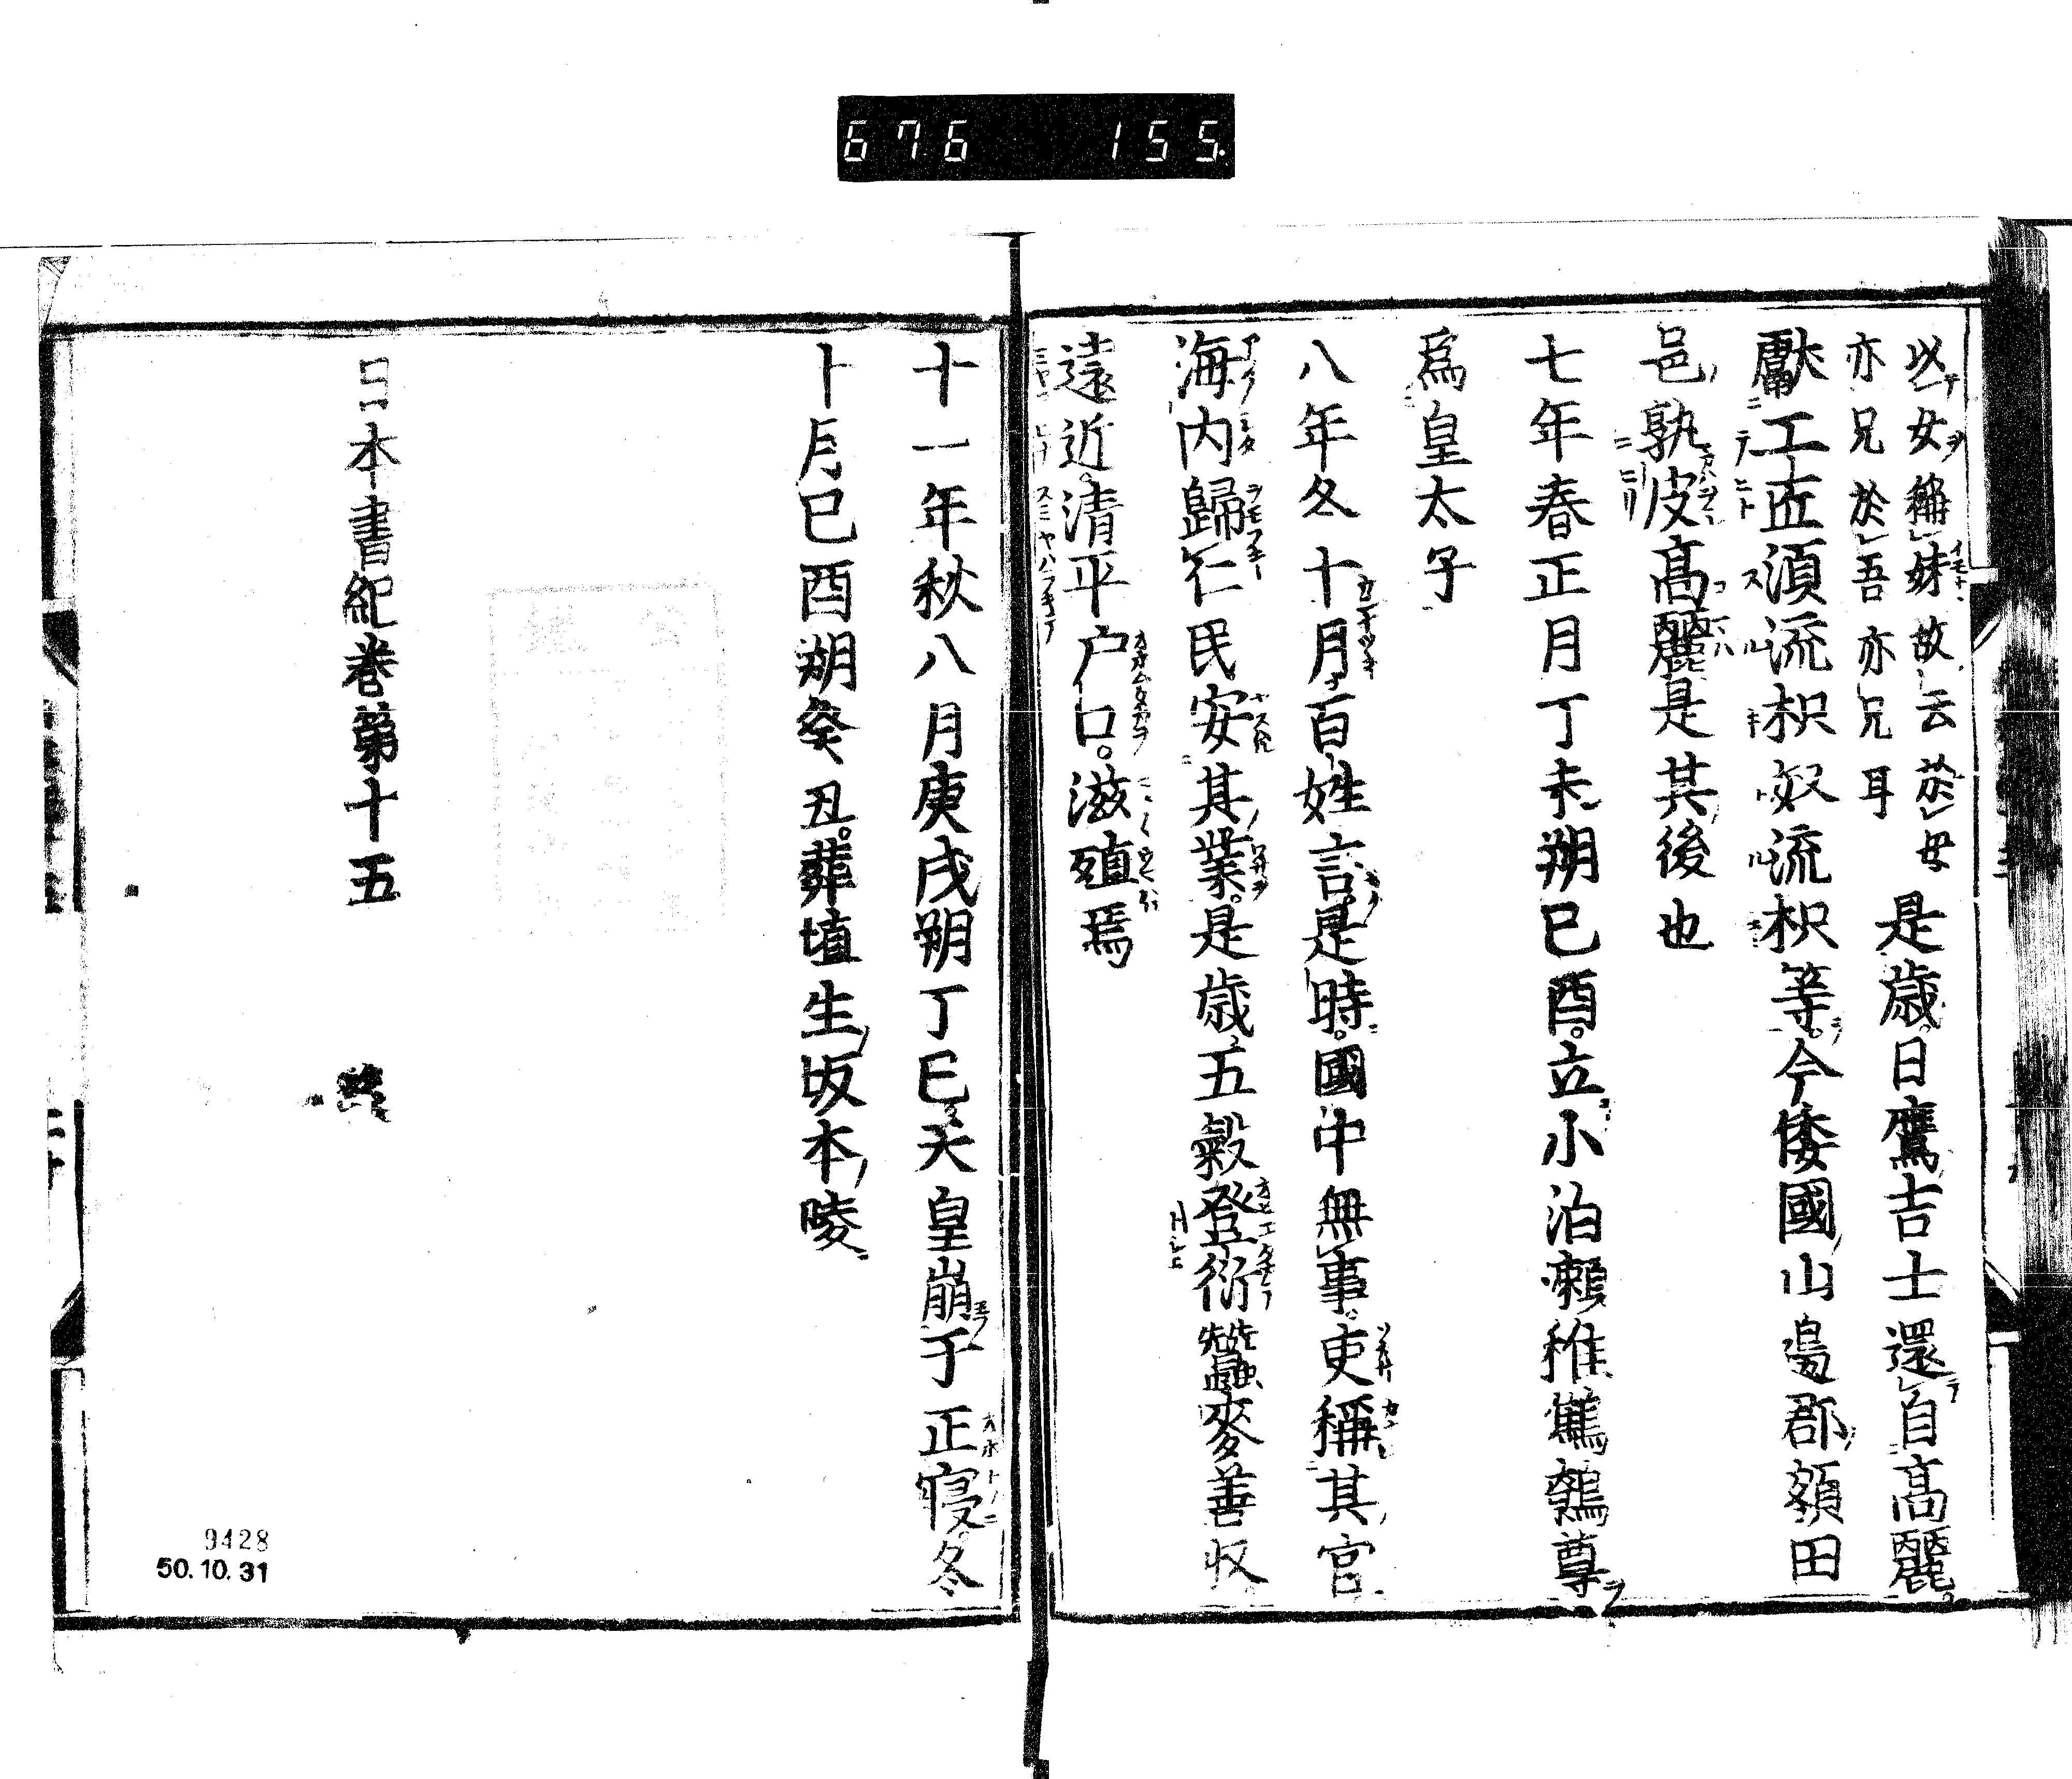 676 155
以女稱妹故云於母
亦兄於吾亦兄耳
是歳日鷹吉士還自髙麗
獻工匠湏流枳奴流枳等今倭國山邉郡額田
邑熟皮髙麗是其後也
七年春正月丁未朔巳酉立小泊瀬稚鷦鷯尊
爲皇太子
八年冬十月百姓言是時國中無事吏稱其官
海内歸仁民安其業是歳五穀登衍蠶麥善收
遠近清平户口滋殖焉
十一年秋八月庚戌朔丁巳天皇崩于正寝冬
十月巳酉朔癸丑葬埴生坂本陵
日本書紀巻第十五
終
9428
50.10.31